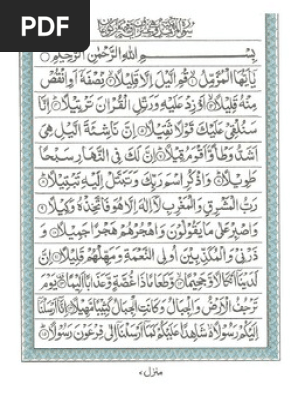 PDF
بِسْمِ اللهِ الرَّحْمٰنِ الرَّحِيْمِ
يٰۤاَيُّهَا الْمُزَّمِّلُ ۙ قُمِ الَّيْلَ اِلَّا قَلِيْلًا ۙ نِّصْفَهٗۤ اَوِ انْقُصْ
مِنْهُ قَلِيْلًا ۙ اَوْ زِدْ عَلَيْهِ وَرَتِّلِ الْقُرْاٰنَ تَرْتِيْلًا ؕ اِنَّا
سَنُلْقِيْ عَلَيْكَ قَوْلًا ثَقِيْلًا اِنَّ نَاشِئَةَ الَّيْلِ هِيَ
اَشَدُّ وَطْاً وَّاَقْوَمُ قِيْلًا ؕ اِنَّ لَكَ فِي النَّهَارِ سَبْحًا
طَوِيْلًا ؕ وَاذْكُرِ اسْمَ رَبِّكَ وَتَبَتَّلْ اِلَيْهِ تَبْتِيْلًا ؕ
رَبُّ الْمَشْرِقِ وَالْمَغْرِبِ لَاۤ اِلٰهَ اِلَّا هُوَ فَاتَّخِذْهُ وَكِيْلًا
وَاصْبِرْ عَلٰى مَا يَقُوْلُوْنَ وَاهْجُرْهُمْ هَجْرًا جَمِيْلًا وَ
ذَرْنِيْ وَالْمُكَذِّبِيْنَ اُولِي النَّعْمَةِ وَمَهِّلْهُمْ قَلِيْلًا اِنَّ
لَدَيْنَاۤ اَنْكَالًا وَّجَحِيْمًا ۙ وَّطَعَامًا ذَا غُصَّةٍ وَّعَذَابًا اَلِيْمًا يَوْمَ
تَرْجُفُ الْاَرْضُ وَالْجِبَالُ وَكَانَتِ الْجِبَالُ كَثِيْبًا مَّهِيْلًا اِنَّاۤ اَرْسَلْنَاۤ
اِلَيْكُمْ رَسُوْلًا ۙ شَاهِدًا عَلَيْكُمْ كَمَاۤ اَرْسَلْنَاۤ اِلٰى فِرْعَوْنَ رَسُوْلًا ؕ
منزل ٧